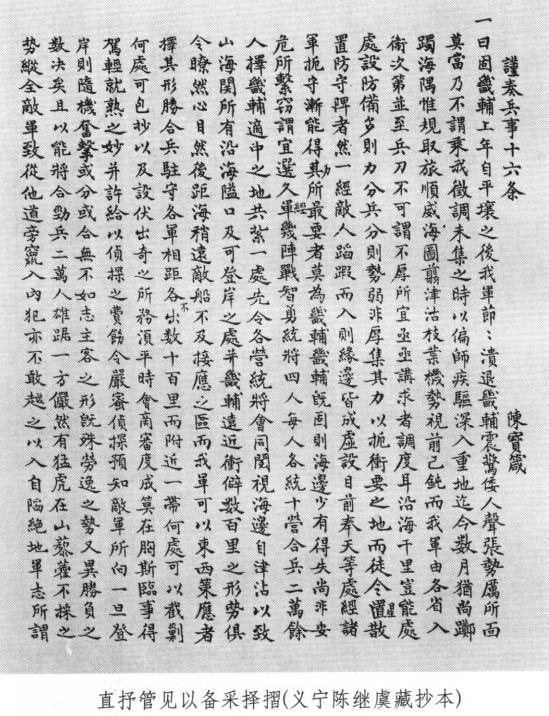 謹奏兵事十六条
陳寶箴
一曰固畿輔上年自平壤之後我軍節〻潰退畿輔震驚倭人聲張勢厲所面
莫當乃不謂乘我徵調未集之時以偏師疾驅深入重地迄今數月猶尚躑
躅海隅惟規取旅順威海圖翦津沽枝葉機勢視前已鈍而我軍由各省入
衛次第並至兵刀不可謂不厚所宜亟亟講求者調度耳沿海千里豈能處
處設防備多則力分兵分則勢弱非厚集其力以扼衝要之地而徒令零星散
置防守陴者然一經敵人蹈瑕而入則緣邊皆成虛設目前奉天等處經諸
軍扼守漸能得力其所最要者莫為畿輔畿輔既固則海邊少有得失尚非安
危所繫竊謂宜選久經軍幾陣戰智勇統將四人每人各統十營合兵二萬餘
人擇畿輔適中之地共紮一處先令各營統將會同閱視海邊自津沽以致
山海関所有沿海隘口及可登岸之處并畿輔遠近衝僻數百里之形势俱
令瞭然心目然後距海稍遠敵船不及接應之區而我軍可以東西策應者
擇其形勝合兵駐守各軍相距各不出數十百里而附近一帶何處可以截剿
何處可包抄以及設伏出奇之所務須平時會商審度成筭在胸斯臨事得
駕輕就熟之妙并許給以偵探之費飭令嚴密偵探預知敵軍所向一旦登
岸則隨機奮擊或分或合無不如志主客之形既殊勞逸之勢又異勝負之
數决矣且以能將合勁兵二萬人雄踞一方儼然有猛虎在山藜藿不採之
势縱全敵軍致從他道旁竄入內犯亦不敢越之以入自陷絕地軍志所謂
直抒管见以备采择摺(义宁陈继虞藏抄本)